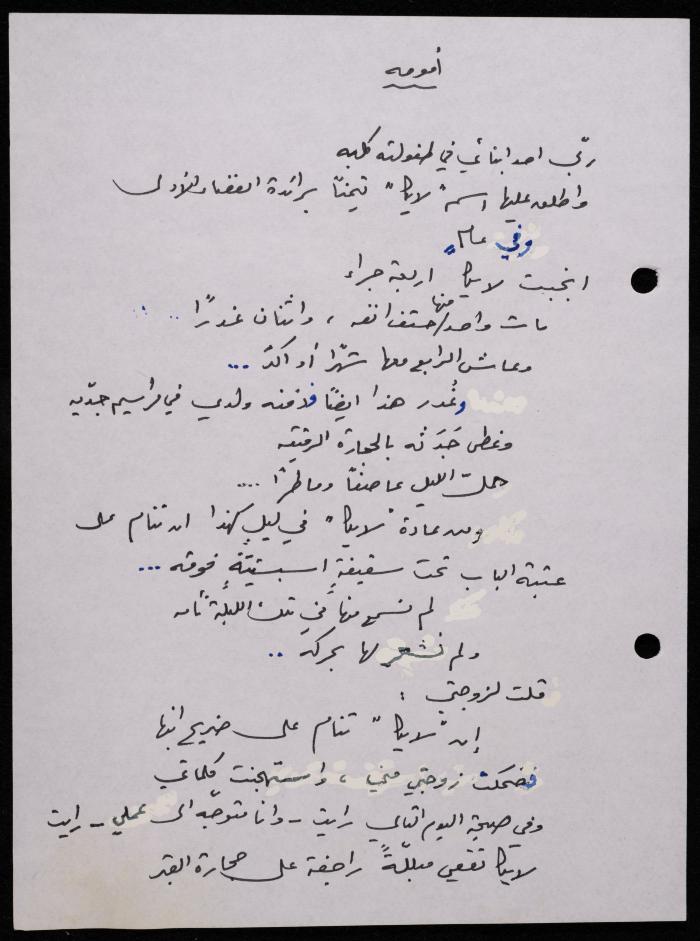 أمومه
ربّى احد ابنائي في طفولته كلبه
واطلق عليها اسم "لايكا" تيمّناً برائدة الفضاء الاولى
وفي عام
انجبت لايكا اربعة جراء
مات واحد منها حتف انفه ، واثنان غدرًا ..
وعاش الرابع معها شهرًا أو اكثر ...
وغُدر هذا ايضًا فدفنه ولدي في قرأسيم جدّيه
وغطى جَدَثه بالحجارة الرقيقه
حلّ الليل عاصفًا وماطرًا ....
ومن عادة "لايكا" في ليلٍ كهذا ان تنام على
عتبة الباب تحت سقيفةٍ اسبستيّةٍ فوقه ...
لم نسمع منها في تلك الليلة نأمه
ولم نشعر لها بحركة ..
قلت لزوجتي :
إن "لايكا" تنام على ضريح ابنها
فضحكت زوجتي مني ، واستهجنت كلماتي
وفي صبيحة اليوم التالي رايت - وانا متوجّه الى عملي - رايت
لايكا تقعي مبللّةً راجفة على حجارة القبر